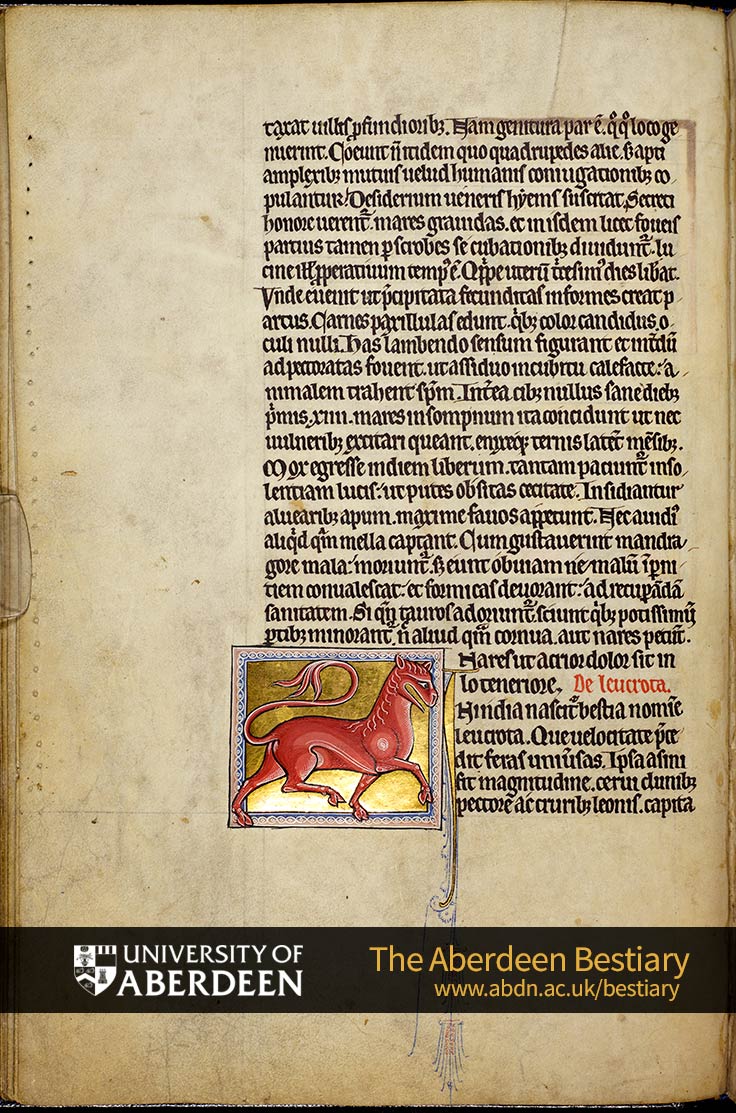 taxat uillis ꝓfundioribꝫ. Nam genitura par ē. q̊q̊ loco ge
nuerint. Coeunt ñ itidem quo quadrupedes alie. sꝫ apti
amplexibꝫ mutuis uelud humanis coniugationibꝫ co
pulantur. Desiderium ueneris hyemis suscitat. Secreti
honore uerent᷑ mares grauidas. et in isdem licet foueis
partitis tamen ꝑ scrobes se cubationibꝫ diuidunt᷑. lu
cine temp᷒ ē. Qͥppe uterū tͥcesim᷒ dies libat.
Vnde euenit ut p̄cipitata fecunditas informes creat p
artus. Carnes paxillulas edunt. qͥbꝫ color candidus. o
culi nulli. has lambendo sensim figurant et int̄dū
ad pectoratas fouent. ut assiduo incubitu calefacte: a
nimalem trahent sp̄m. Int̄ea cibꝫ nullus sane diebꝫ
pͥmis .xiiii. mares in sompnum ita concidunt ut nec
uulneribꝫ excitari queant. enixeqꝫ ternis latent mēsibꝫ.
Mox egresse in diem liberum. tantam paciunt᷑ inso
lentiam lucis: ut putes obsitas cecitate. Insidiantur
aluearibꝫ apum. maxime fauos appetunt. Nec auidi᷒
aliqͥd qͣm mella captant. Cum gustauerint mandra
gore mala: moriunt᷑. sꝫ eunt obuiam ne malū ī ꝑni
tiem conualescat: et formicas deuorant: ad recuꝑādā
sanitatem. Si qn̄ tauros adoriunt᷑. sciunt qͥbꝫ potissimū
ꝑtibꝫ minorant᷑. ñ aliud qͣm cornua aut nares petūt.
Nares ut acrior dolor sit in
loco teneriore. De leucrota.
IN india nascit᷑ bestia nomīe
leucrota. Que uelocitate p̄ce
dit feras uniu᷑sas. Ipsa asini
fit magnitudine. cerui clunibꝫ
pectore ac cruribꝫ leonis. capita
UNIVERSITY OF
ABERDEEN
The Aberdeen Bestiary
www.abdn.ac.uk/bestiary